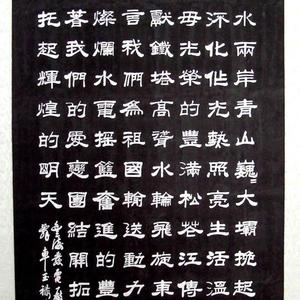 水兩岸青山巍〻大壩挑起
化作光熱照亮生活溫
光榮的豐滿松花江傳
獻鐵塔高聳水輪飛旋
言我們為祖國輸送動力
燦爛水電搖籃奮進的
著我們的愛團結開拓
托起輝煌的明天